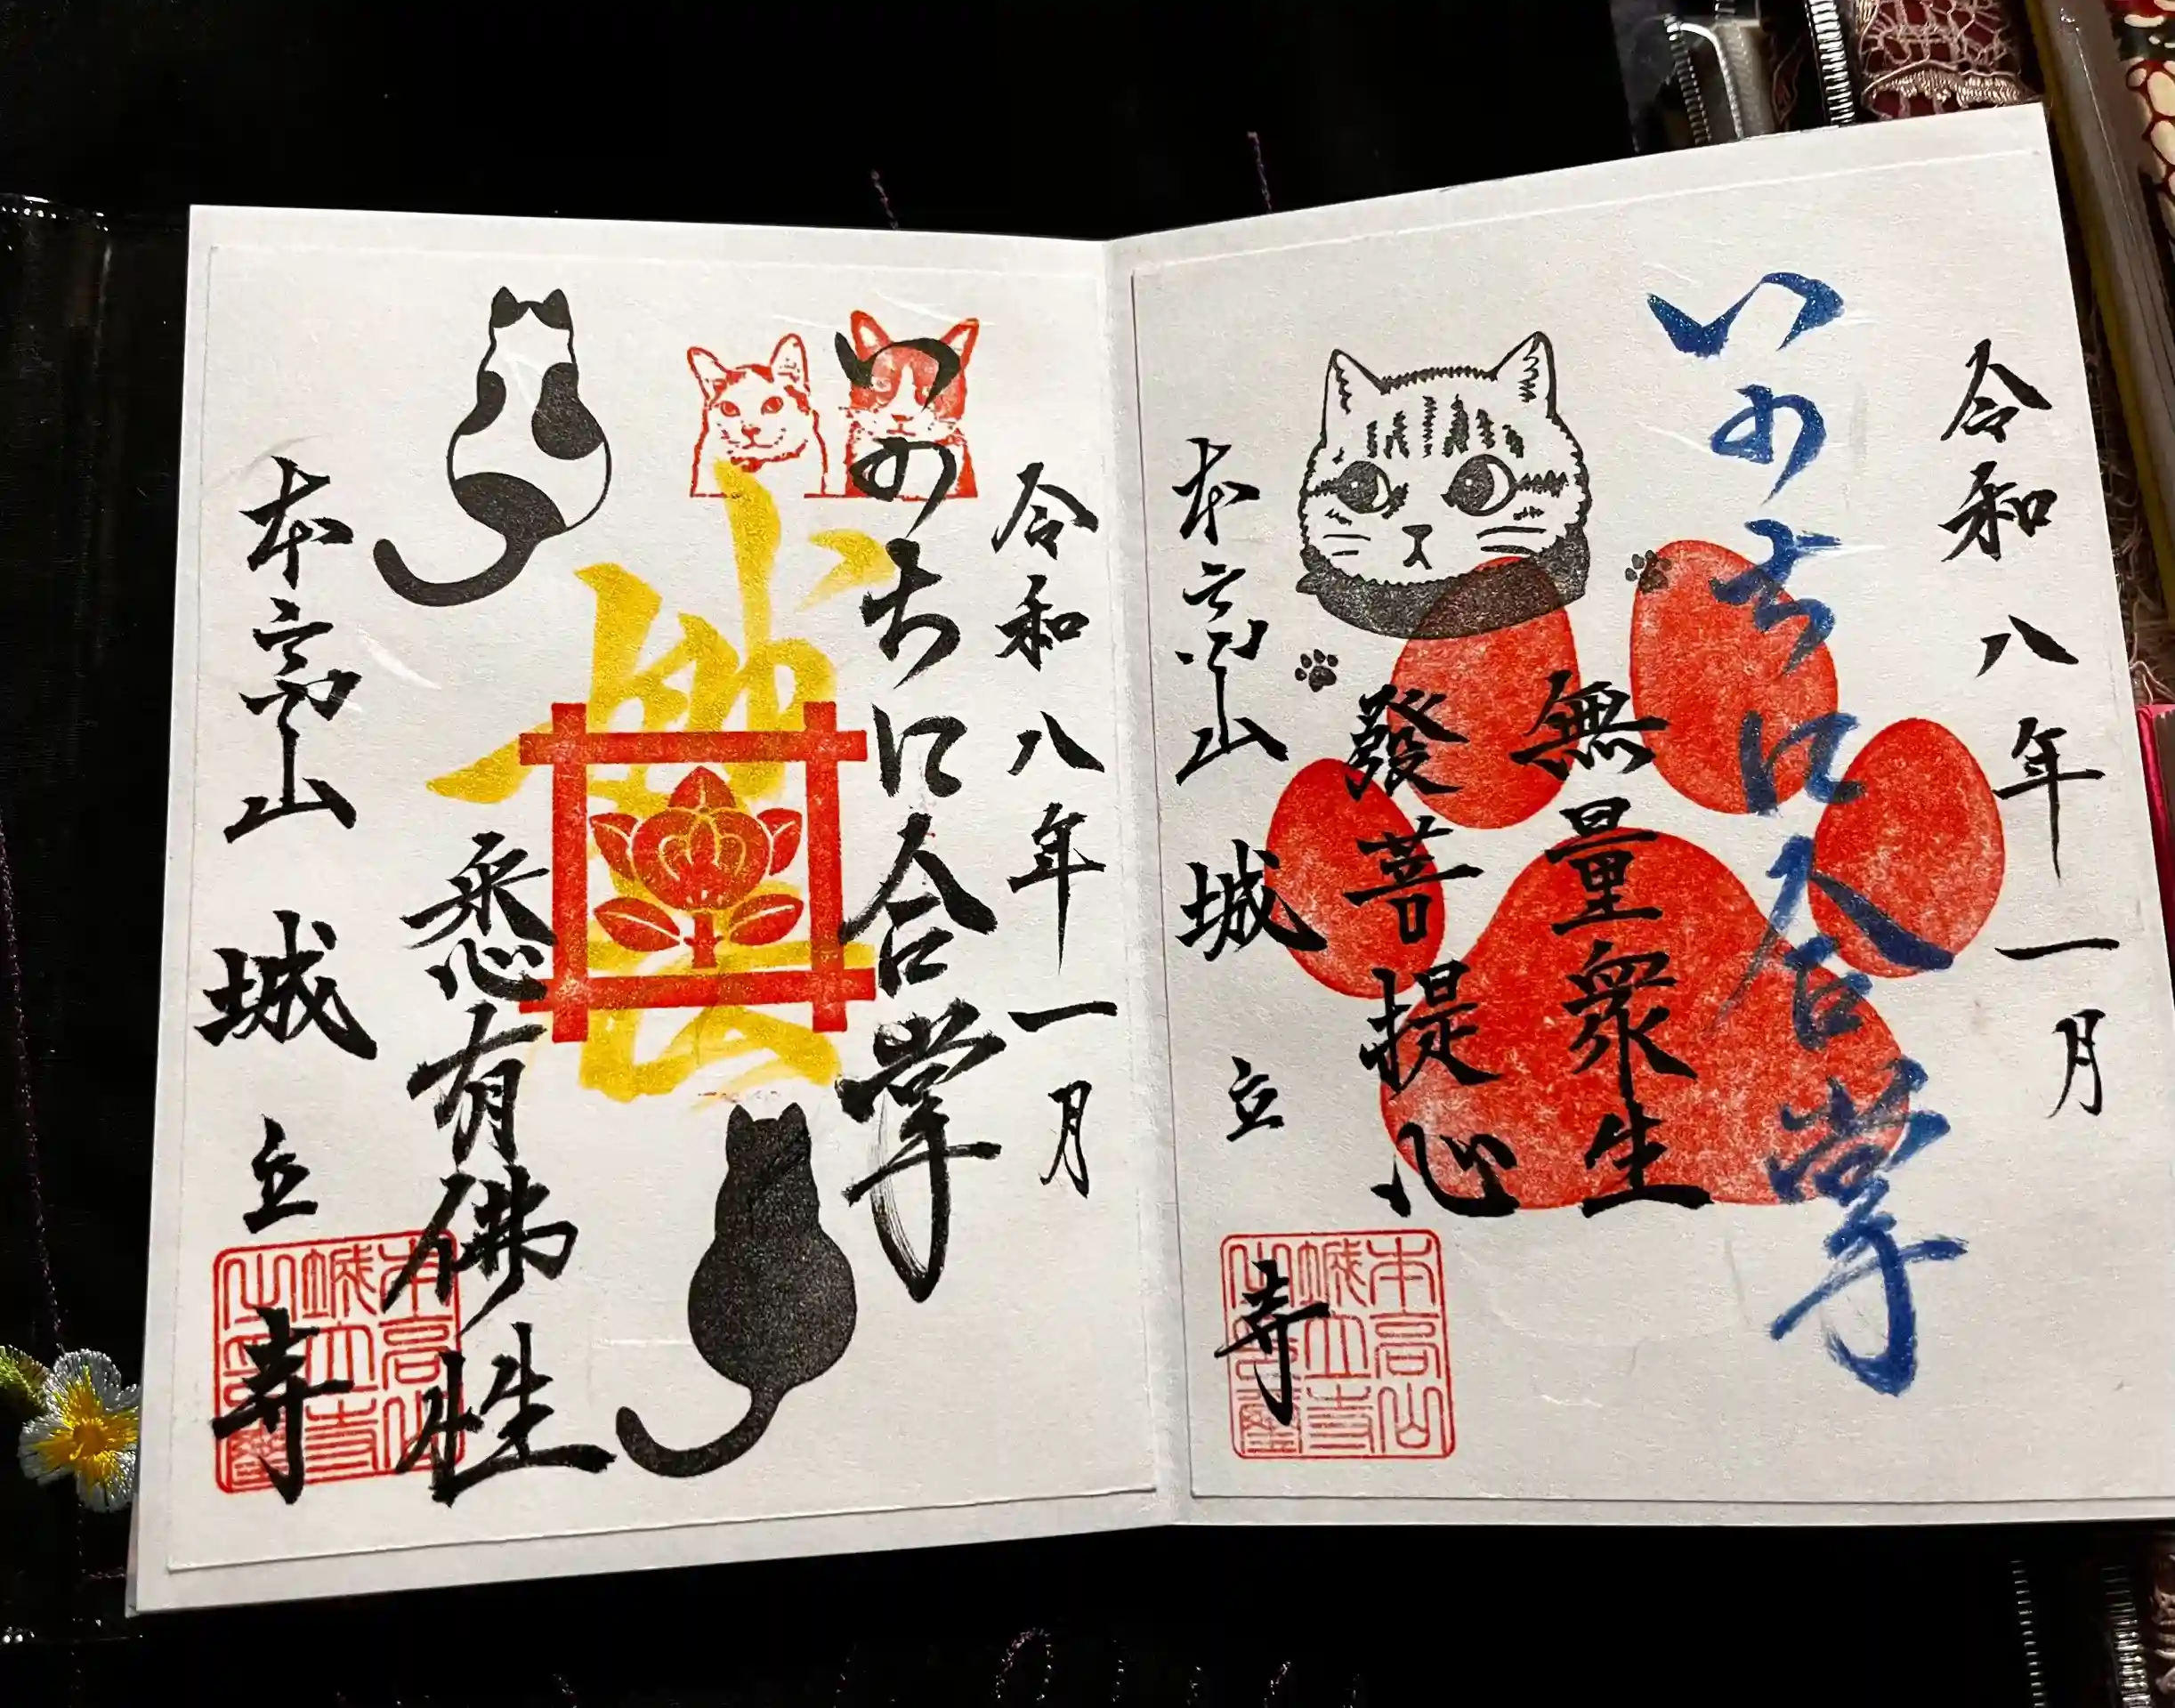 令和八年一月
いのちに合掌
無量衆生
發菩提心
本高山 城立寺
本高山
城立寺
令和八年一月
いのちに合掌
悉有佛性
本高山 城立寺
本高山
城立寺